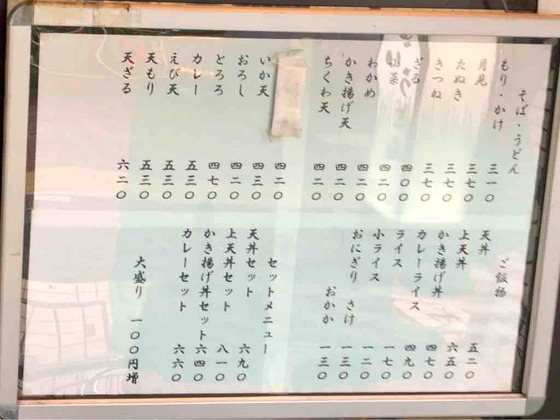 そば・うどん
もり・かけ 三一〇
月見 三七〇
たぬき 三七〇
きつね 三七〇
ざる 四〇〇
山菜 四二〇
わかめ 四二〇
かき揚げ天 四二〇
ちくわ天 四二〇
四二〇
いか天 四三〇
おろし 四二〇
とろろ 四七〇
カレー 五三〇
えび天 五三〇
天もり 五三〇
天ざる 六二〇
ご飯物
天丼 五二〇
上天丼 六五〇
かき揚げ丼 四七〇
カレーライス 四九〇
ライス 一七〇
小ライス 一二〇
おにぎり さけ 一三〇
おかか 一三〇
セットメニュー
天丼セット 六九〇
上天丼セット 八一〇
かき揚げ丼セット 六四〇
カレーセット 六六〇
大盛り 一〇〇円増